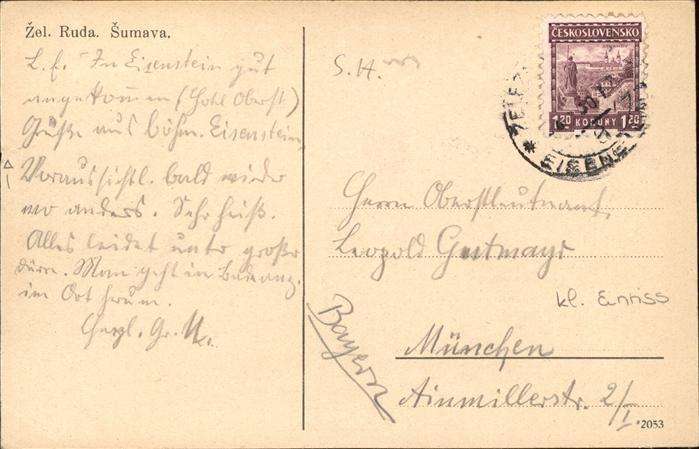 Žel. Ruda. Šumava.
L. E. In Eisenstein gut
angekommen (Hotel Oberst)
Grüße aus böhm. Eisenstein,
Voraussichtl. bald wieder
wo anders. Sehr heiß.
Alles leidet unter großer
Dürre. Man geht im Badeanz.
im Ort herum.
Herzl. Gr.
S. H.
ČESKOSLOVENSKO
1.20 KORUNY 1.20
EISENS
Herrn Oberstleutnant
Leopold Gustmayr
kl. Einriss
München
Bayern
Ainmillerstr. 2/I
2053